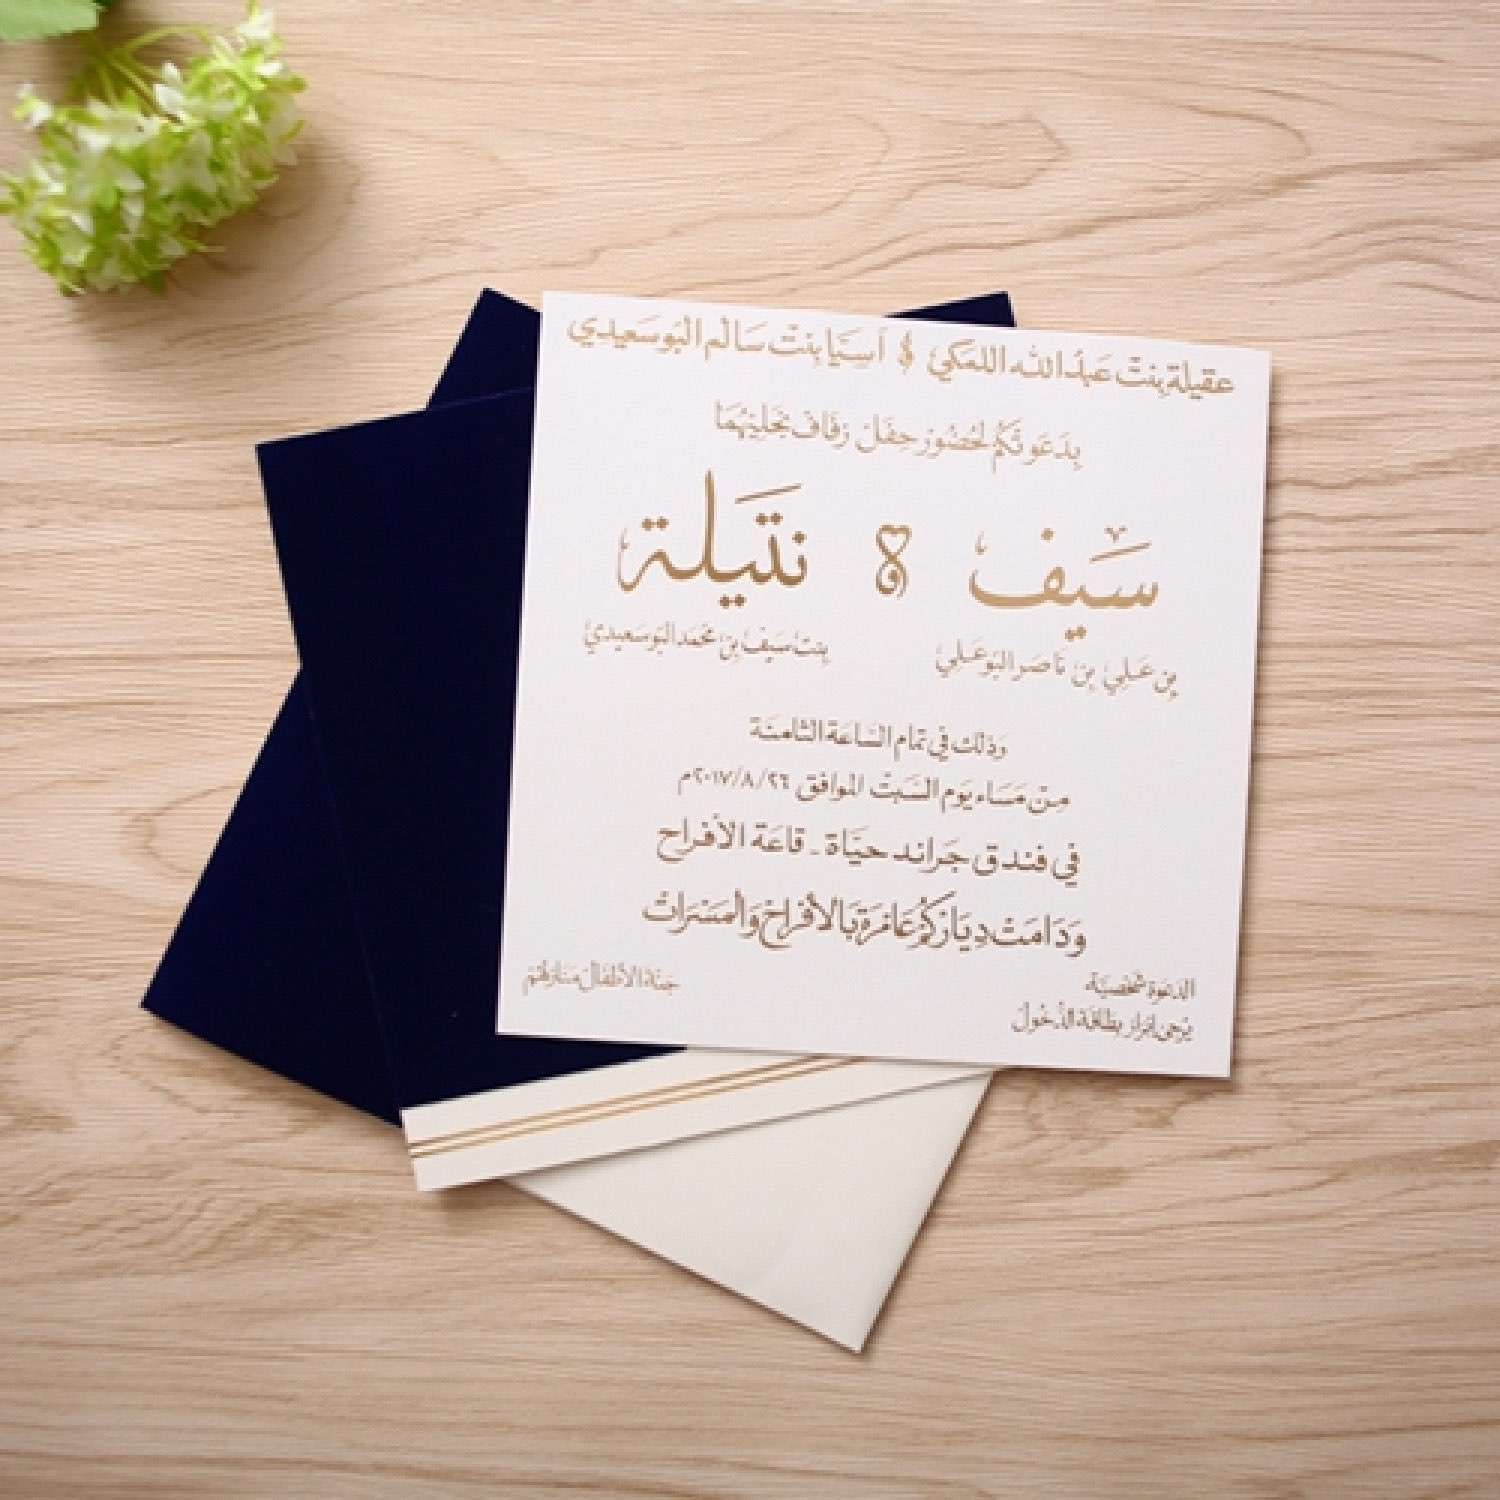 عقيلة بنت عبدالله اللمكي & آسيا بنت سالم البوسعيدي
بدعوتكم لحضور حفل زفاف نجليهما
سيف & نتيلة
بن علي بن ناصر البوعلي
بنت سيف بن محمد البوسعيدي
وذلك في تمام الساعة الثامنة
من مساء يوم السبت الموافق ٢٠١٧/٨/٢٦م
في فندق جراند حياة - قاعة الأفراح
ودامت دياركم عامرة بالأفراح والمسرات
الدعوة شخصية
يرجى إبراز بطاقة الدخول
جنة الأطفال منازلهم